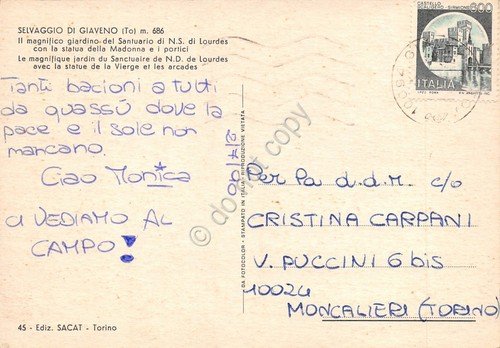 SELVAGGIO DI GIAVENO (To) m. 686
Il magnifico giardino del Santuario di N.S. di Lourdes
con la statua della Madonna e i portici
Le magnifique jardin du Sanctuaire de N.D. de Lourdes
avec la statue de la Vierge et les arcades
Tanti bacioni a tutti
da quassù dove la
pace e il sole non
mancano.
Ciao Monica
CI VEDIAMO AL
CAMPO!
45 - Ediz. SACAT - Torino
DA FOTOCOLOR - STAMPATO IN ITALIA - RIPRODUZIONE VIETATA
do not copy
600
ITALIA
Per la d.d.m. c/o
CRISTINA CARPANI
V. PUCCINI 6 bis
10024
MONCALIERI (TORINO)